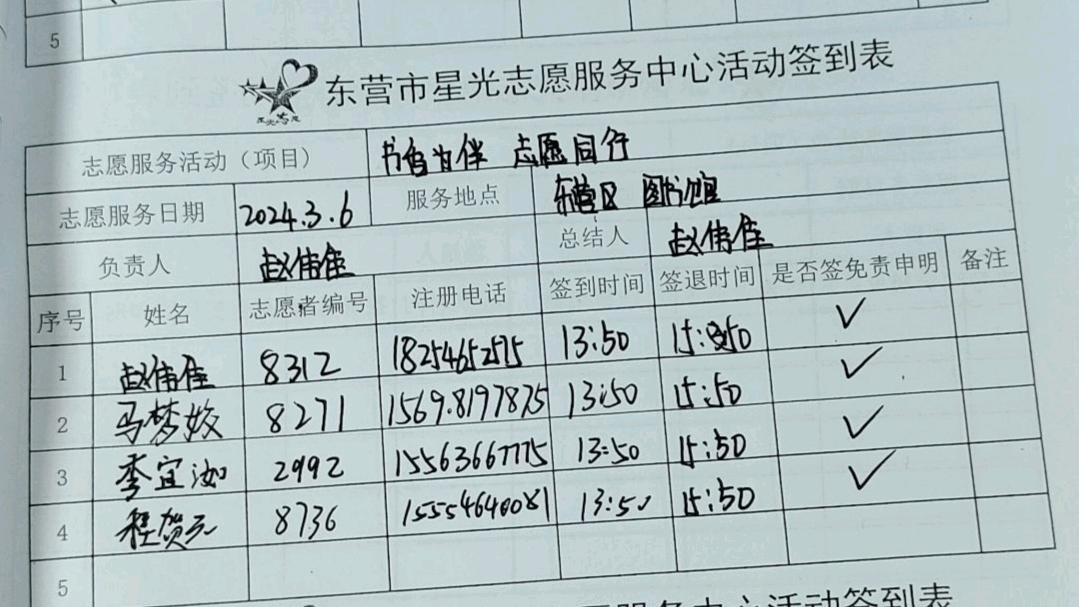 5
东营市星光志愿服务中心活动签到表
志愿服务活动（项目） 书香为伴 志愿同行
志愿服务日期 2024.3.6 服务地点 东营区 图书馆
负责人 赵伟佳 总结人 赵伟佳
序号 姓名 志愿者编号 注册电话 签到时间 签退时间 是否签免责申明 备注
1 赵伟佳 8312 18254652575 13:50 15:50 ✓
2 马梦姣 8271 1569.8197875 13:50 15:50 ✓
3 李宜汝 2992 15563667775 13:50 15:50 ✓
4 8736 15554640081 13:50 15:50 ✓
5
志愿服务中心活动签到表